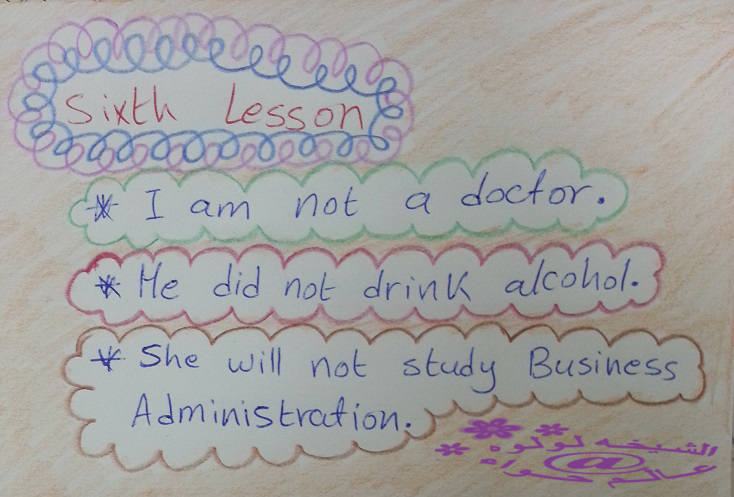 Sixth Lesson
* I am not a doctor.
* He did not drink alcohol.
* She will not study Business
Administration.
الشيخه لولوه
@
عالم حواء